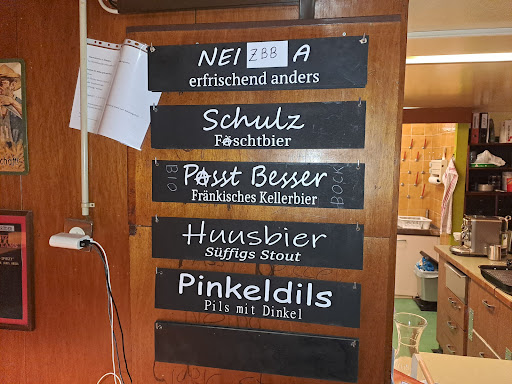 NEI ZBB A
erfrischend anders
Schulz
Faschtbier
Passt Besser
BIO
BOCK
Fränkisches Kellerbier
Huusbier
Süffigs Stout
Pinkeldils
Pils mit Dinkel